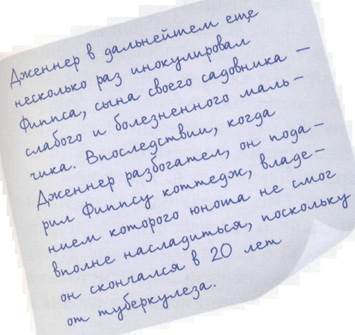 Дженнер в дальнейшем еще
несколько раз инокулировал
Фиппса, сына своего садовника –
слабого и болезненного маль–
чика. Впоследствии, когда
Дженнер разбогател, он пода–
рил Фиппсу коттедж, владе–
нием которого юноша не смог
вполне насладиться, поскольку
он скончался в 20 лет
от туберкулеза.